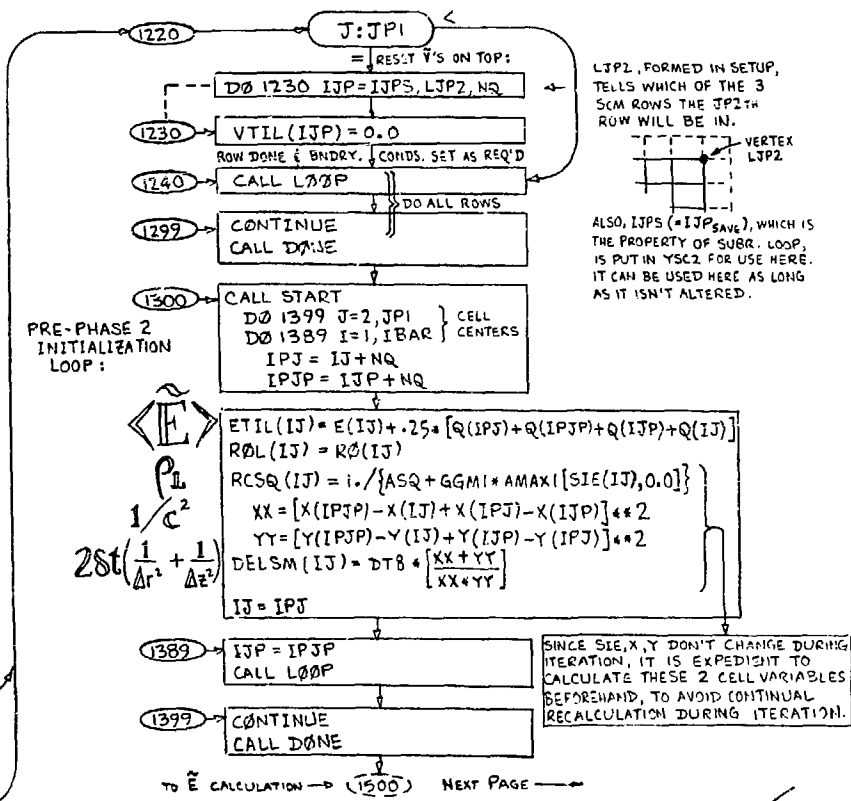 1220
J:JP1
<
= RESET Ṽ'S ON TOP:
DØ 1230 IJP=IJPS, LJP2, NQ
1230
VTIL(IJP)=0.0
ROW DONE & BNDRY. CONDS. SET AS REQ'D
1240
CALL LØØP
DO ALL ROWS
1299
CØNTINUE
CALL DØNE
LJP2, FORMED IN SETUP,
TELLS WHICH OF THE 3
SCM ROWS THE JP2TH
ROW WILL BE IN.
VERTEX
LJP2
ALSO, IJPS (=IJP SAVE), WHICH IS
THE PROPERTY OF SUBR. LOOP,
IS PUT IN YSC2 FOR USE HERE.
IT CAN BE USED HERE AS LONG
AS IT ISN'T ALTERED.
PRE-PHASE 2
INITIALIZATION
LOOP:
1300
CALL START
DØ 1399 J=2,JP1
DØ 1389 I=1,IBAR
CELL
CENTERS
IPJ = IJ+NQ
IPJP = IJP+NQ
⟨Ẽ⟩
ρL
1/c²
2δt(1/Δr² + 1/Δz²)
ETIL(IJ)=E(IJ)+.25*[Q(IPJ)+Q(IPJP)+Q(IJP)+Q(IJ)]
RØL(IJ) = RØ(IJ)
RCSQ(IJ) = 1./{ASQ+GGM1*AMAX1[SIE(IJ),0.0]}
XX=[X(IPJP)-X(IJ)+X(IPJ)-X(IJP)]**2
YY=[Y(IPJP)-Y(IJ)+Y(IJP)-Y(IPJ)]**2
DELSM(IJ)=DT8*[XX+YY/XX*YY]
IJ=IPJ
1389
IJP = IPJP
CALL LØØP
SINCE SIE,X,Y DON'T CHANGE DURING
ITERATION, IT IS EXPEDIENT TO
CALCULATE THESE 2 CELL VARIABLES
BEFOREHAND, TO AVOID CONTINUAL
RECALCULATION DURING ITERATION.
1399
CØNTINUE
CALL DØNE
TO Ẽ CALCULATION → 1500 NEXT PAGE